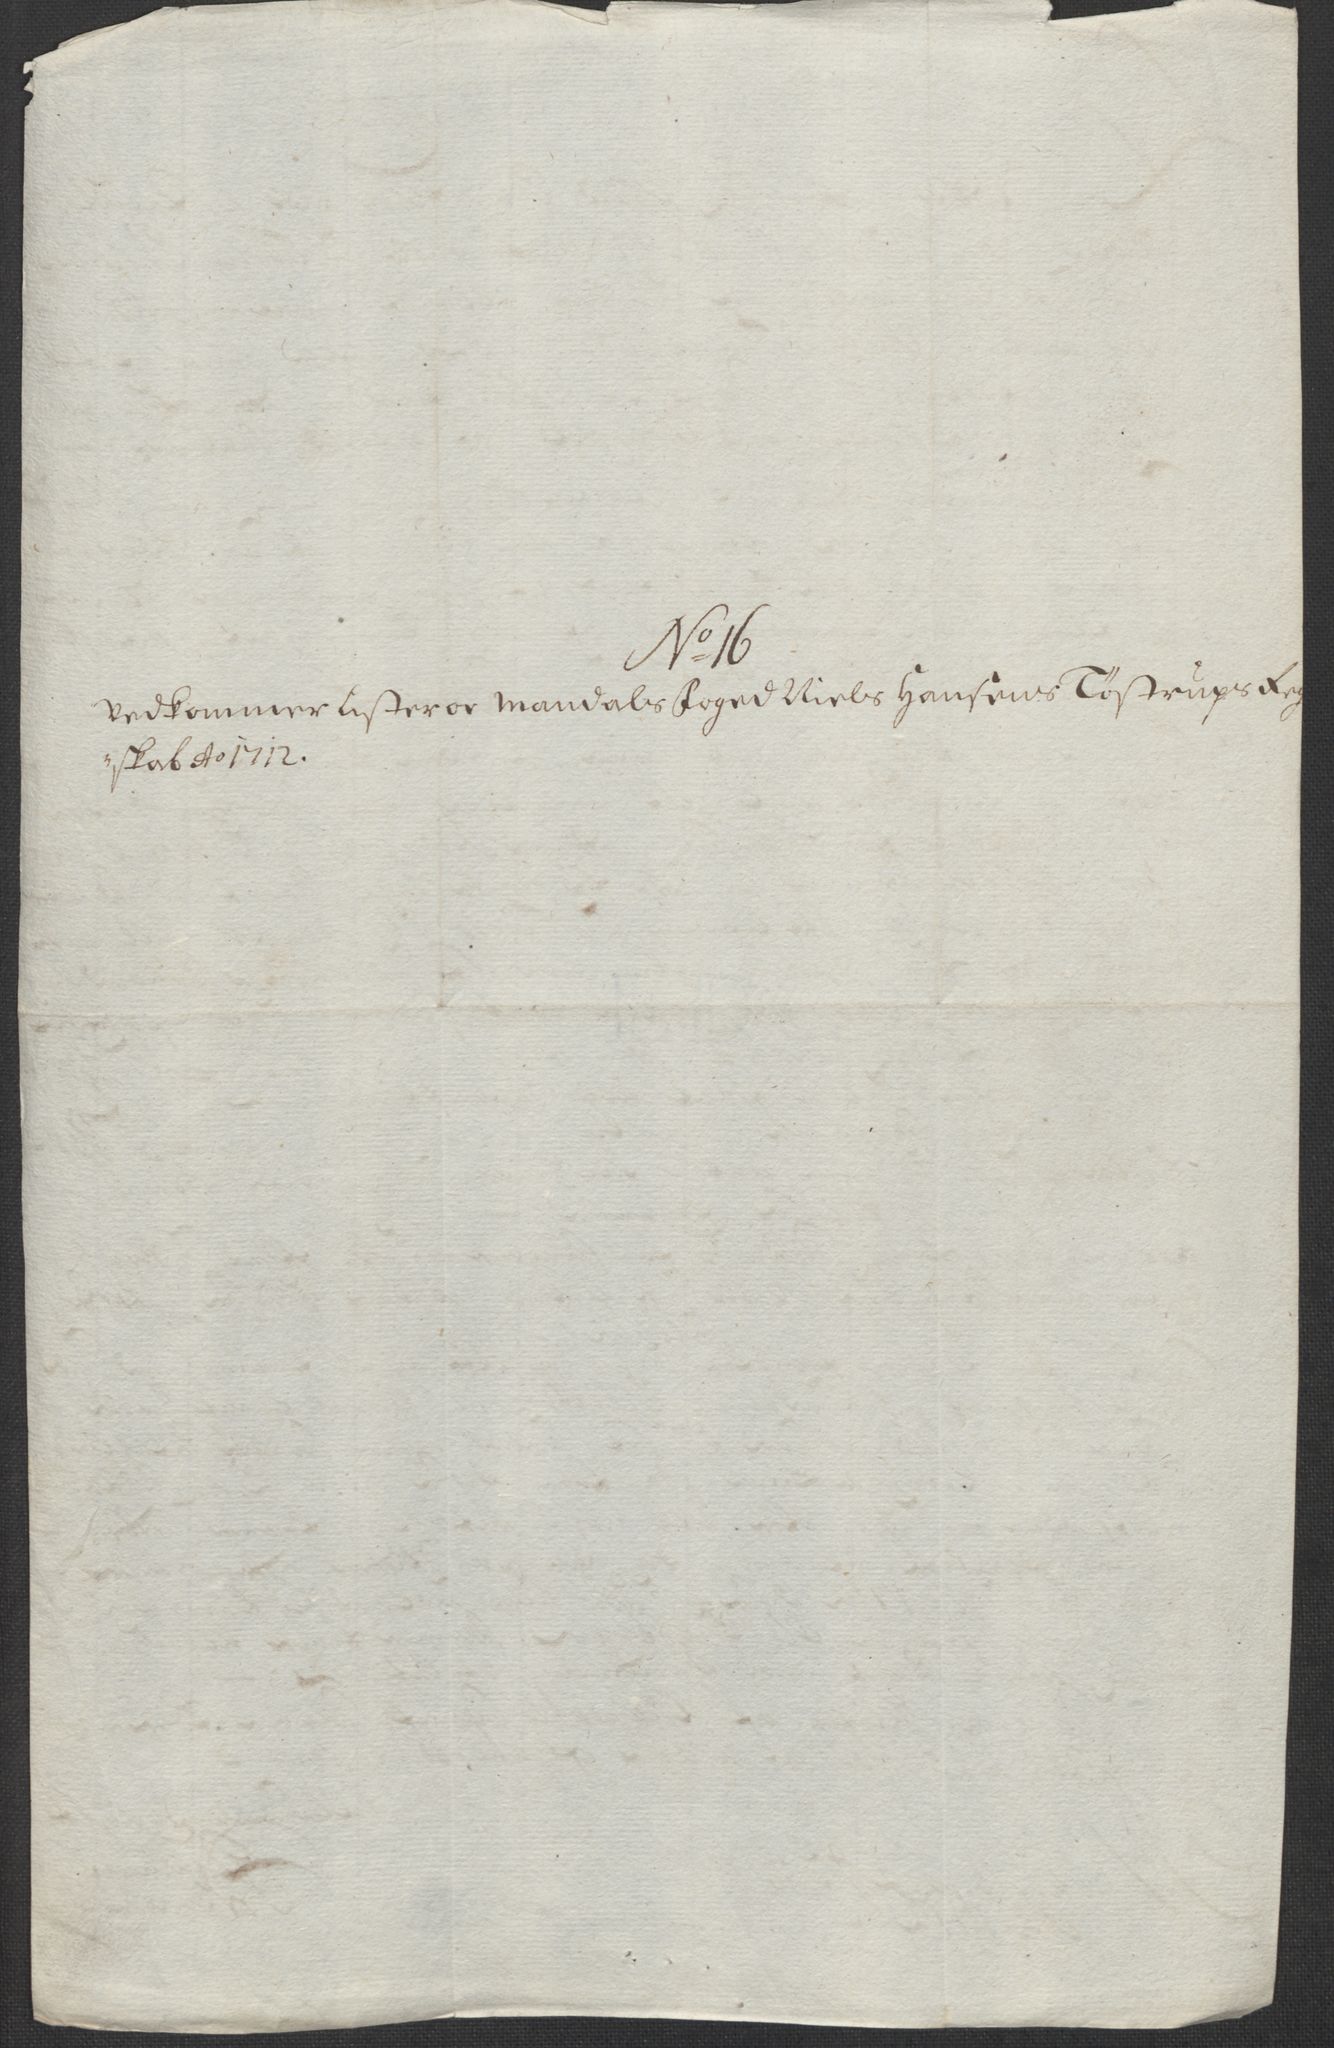 No 16
Vedkommer Lister oc Mandals Foged Niels Hansens Töstrups Reg
"skab Ao 1712.